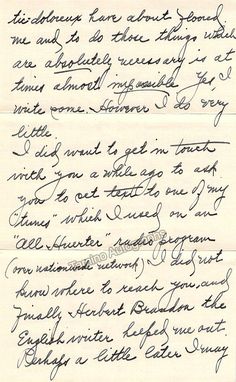 tic doloreux have about floored
me and to do those things which
are absolutely necessary is at
times almost impossible. Yes, I
write some. However I do very
little.
I did want to get in touch
with you a while ago to ask
you to set text to one of my
"tunes" which I used on an
"All Huerter" radio program
(over nationwide network) I did not
know where to reach you, and
finally Herbert Brandon the
English writer helped me out.
Perhaps a little later I may
Tamino Autographs